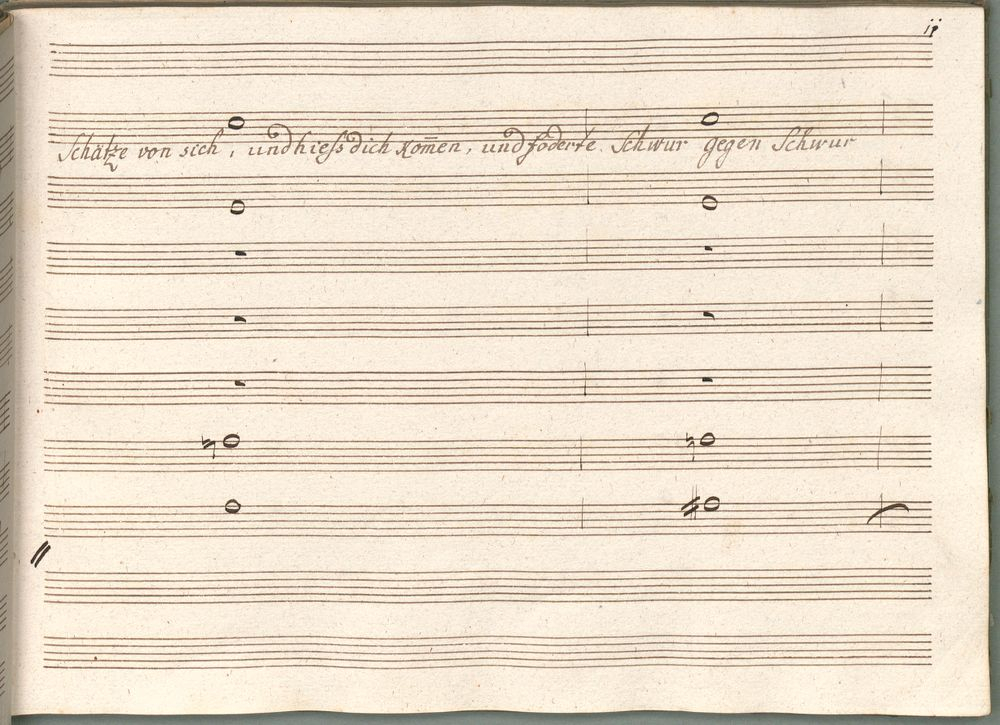 11
Schätze von sich, und hiess dich kom̅en, und foderte Schwur gegen Schwur